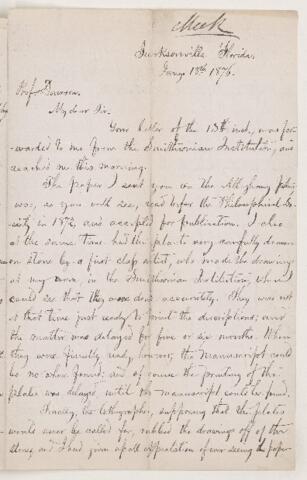 Meek
Jacksonville Florida,
Jany 18th 1876.
Prof Dawson
My dear Sir.
Your letter of the 13th inst, was for-
warded to me from the Smithsonian Institution, and
reached me this morning.
The paper I sent you on the Alleghany
was, as you will see, read before the Philosophical So-
ciety in 1872, and accepted for publication. I also
at the same time had the plate very carefully drawn
on stone by a first class artist, who made the drawings
at my room, in the Smithsonian Institution, where I
could see that they were done accurately. They was not
at that time just ready to print the descriptions; and
the matter was delayed for five or six months. When
they were finally ready, however, the manuscript could
be no where found; and of course the printing of the
plates was delayed until the manuscript could be found.
Finally, the lithographer, supposing that the plates
would never be called for, rubbed the drawings off of the
stones, and I had given up all expectation of ever seeing the paper